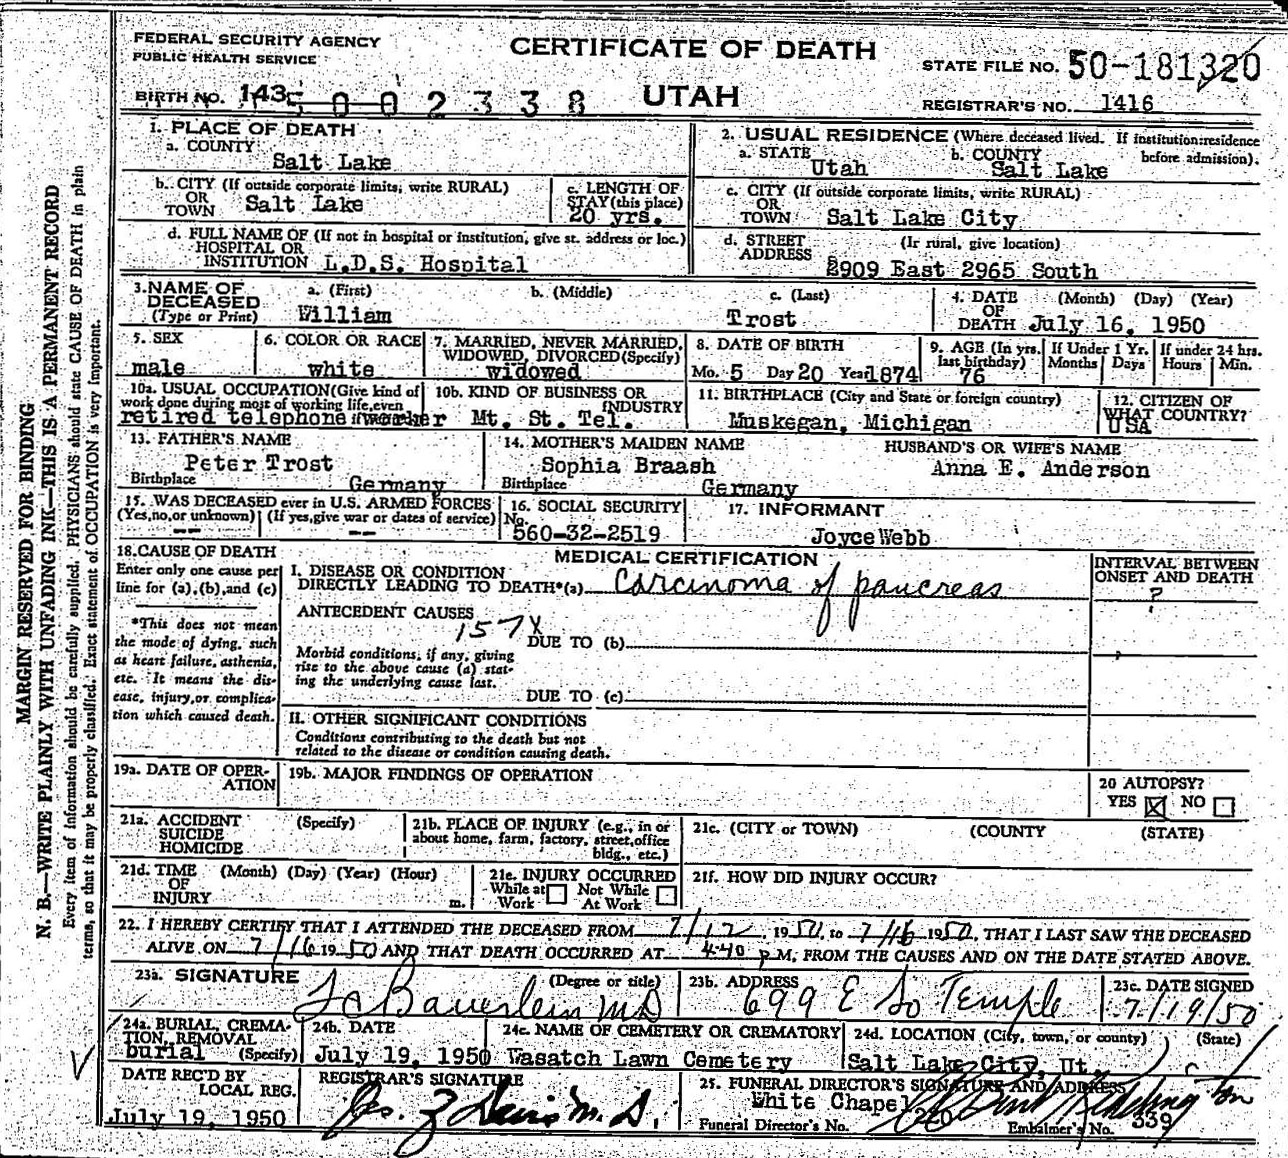 FEDERAL SECURITY AGENCY
PUBLIC HEALTH SERVICE
CERTIFICATE OF DEATH
UTAH
STATE FILE NO. 50-181320
BIRTH NO. 143 5002338
REGISTRAR'S NO. 1416
1. PLACE OF DEATH
a. COUNTY
Salt Lake
2. USUAL RESIDENCE (Where deceased lived. If institution:residence before admission).
a. STATE Utah b. COUNTY Salt Lake
b. CITY (If outside corporate limits, write RURAL)
OR
TOWN Salt Lake
c. LENGTH OF
STAY (this place)
20 yrs.
c. CITY (If outside corporate limits, write RURAL)
OR
TOWN Salt Lake City
d. FULL NAME OF (If not in hospital or institution, give st. address or loc.)
HOSPITAL OR
INSTITUTION L.D.S. Hospital
d. STREET (If rural, give location)
ADDRESS 2909 East 2965 South
3. NAME OF
DECEASED
(Type or Print)
a. (First) b. (Middle) c. (Last)
William Trost
4. DATE (Month) (Day) (Year)
OF
DEATH July 16, 1950
5. SEX
male
6. COLOR OR RACE
white
7. MARRIED, NEVER MARRIED,
WIDOWED, DIVORCED (Specify)
widowed
8. DATE OF BIRTH
Mo. 5 Day 20 Year 1874
9. AGE (In yrs.
last birthday)
76
If Under 1 Yr.
Months Days
If under 24 hrs.
Hours Min.
10a. USUAL OCCUPATION (Give kind of
work done during most of working life, even
if retired)
retired telephone worker
10b. KIND OF BUSINESS OR
INDUSTRY
Mt. St. Tel.
11. BIRTHPLACE (City and State or foreign country)
Muskegan, Michigan
12. CITIZEN OF
WHAT COUNTRY?
USA
13. FATHER'S NAME
Peter Trost
Birthplace Germany
14. MOTHER'S MAIDEN NAME
Sophia Braash
Birthplace Germany
HUSBAND'S OR WIFE'S NAME
Anna E. Anderson
15. WAS DECEASED ever in U.S. ARMED FORCES
(Yes, no, or unknown) (If yes, give war or dates of service)
-- --
16. SOCIAL SECURITY
No.
560-32-2519
17. INFORMANT
Joyce Webb
18. CAUSE OF DEATH
Enter only one cause per
line for (a), (b), and (c)
*This does not mean
the mode of dying, such
as heart failure, asthenia,
etc. It means the dis-
ease, injury, or complica-
tion which caused death.
MEDICAL CERTIFICATION
INTERVAL BETWEEN
ONSET AND DEATH
I. DISEASE OR CONDITION
DIRECTLY LEADING TO DEATH*(a) Carcinoma of pancreas
?
ANTECEDENT CAUSES
157X
DUE TO (b)
Morbid conditions, if any, giving
rise to the above cause (a) stat-
ing the underlying cause last.
DUE TO (c)
II. OTHER SIGNIFICANT CONDITIONS
Conditions contributing to the death but not
related to the disease or condition causing death.
19a. DATE OF OPER-
ATION
19b. MAJOR FINDINGS OF OPERATION
20 AUTOPSY?
YES NO
21a. ACCIDENT (Specify)
SUICIDE
HOMICIDE
21b. PLACE OF INJURY (e.g., in or
about home, farm, factory, street, office
bldg., etc.)
21c. (CITY or TOWN) (COUNTY) (STATE)
21d. TIME (Month) (Day) (Year) (Hour)
OF
INJURY m.
21e. INJURY OCCURRED
While at Work Not While At Work
21f. HOW DID INJURY OCCUR?
22. I HEREBY CERTIFY THAT I ATTENDED THE DECEASED FROM 7/12, 1950, to 7/16 1950, THAT I LAST SAW THE DECEASED
ALIVE ON 7/16 1950 AND THAT DEATH OCCURRED AT 4:40 p M, FROM THE CAUSES AND ON THE DATE STATED ABOVE.
23a. SIGNATURE (Degree or title)
Bauerlein MD
23b. ADDRESS
699 E So Temple
23c. DATE SIGNED
7/19/50
24a. BURIAL, CREMA-
TION, REMOVAL
(Specify)
burial
24b. DATE
July 19, 1950
24c. NAME OF CEMETERY OR CREMATORY
Wasatch Lawn Cemetery
24d. LOCATION (City, town, or county) (State)
Salt Lake City, Ut.
DATE REC'D BY
LOCAL REG.
July 19, 1950
REGISTRAR'S SIGNATURE
M.D.
25. FUNERAL DIRECTOR'S SIGNATURE AND ADDRESS
White Chapel
Funeral Director's No. 220 Embalmer's No. 339
MARGIN RESERVED FOR BINDING
N. B.—WRITE PLAINLY WITH UNFADING INK—THIS IS A PERMANENT RECORD
Every item of information should be carefully supplied. PHYSICIANS should state CAUSE OF DEATH in plain
terms, so that it may be properly classified. Exact statement of OCCUPATION is very important.